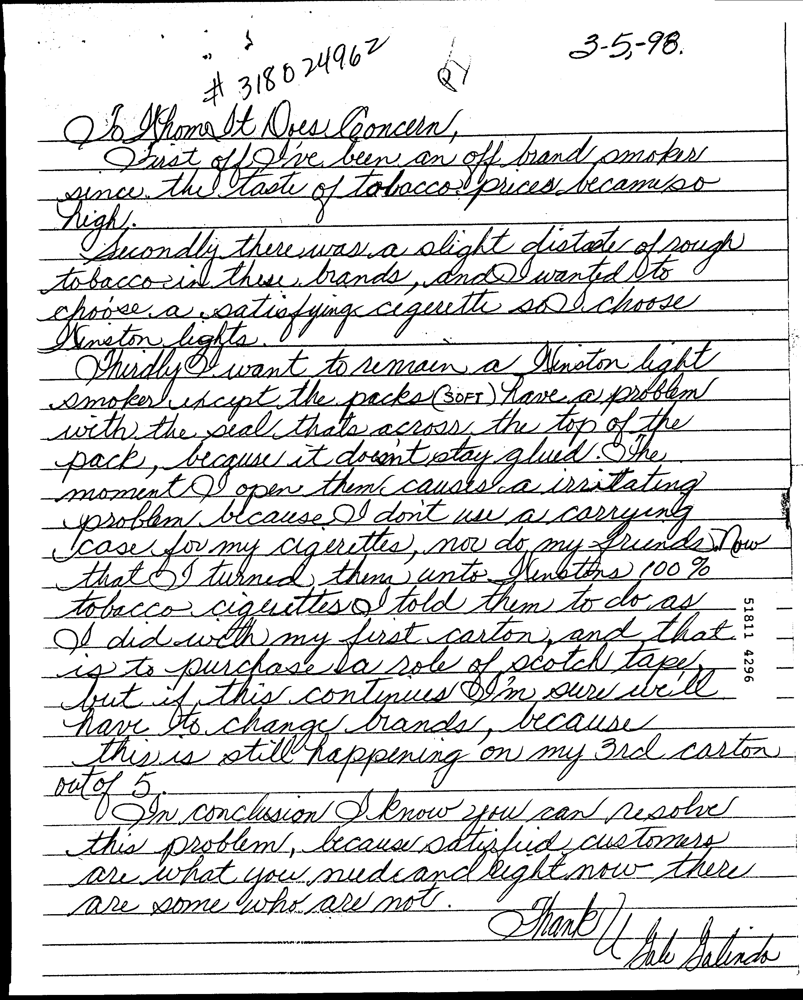 3-5-98.
# 318024962
To Whom It Does Concern,
First off I've been an off brand smoker
since the taste of tobacco prices became so
high.
Secondly there was a slight distate of rough
tobacco in these brands, and I wanted to
choose a satisfying cigerette so I choose
Winston lights.
Thirdly I want to remain a Winston light
smoker except the packs (SOFT) have a problem
with the seal thats across the top of the
pack, because it doesn't stay glued. The
moment I open them causes a irritating
problem because I don't use a carrying
case for my cigerettes, nor do my friends. Now
that I turned them unto Winstons 100%
tobacco cigerettes I told them to do as
I did with my first carton, and that
is to purchase a role of scotch tape,
but if this continues I'm sure we'll
have to change brands, because
this is still happening on my 3rd carton
out of 5.
In conclusion I know you can resolve
this problem, because satisfied customers
are what you need and right now there
are some who are not.
Thank U
Galindo
51811 4296